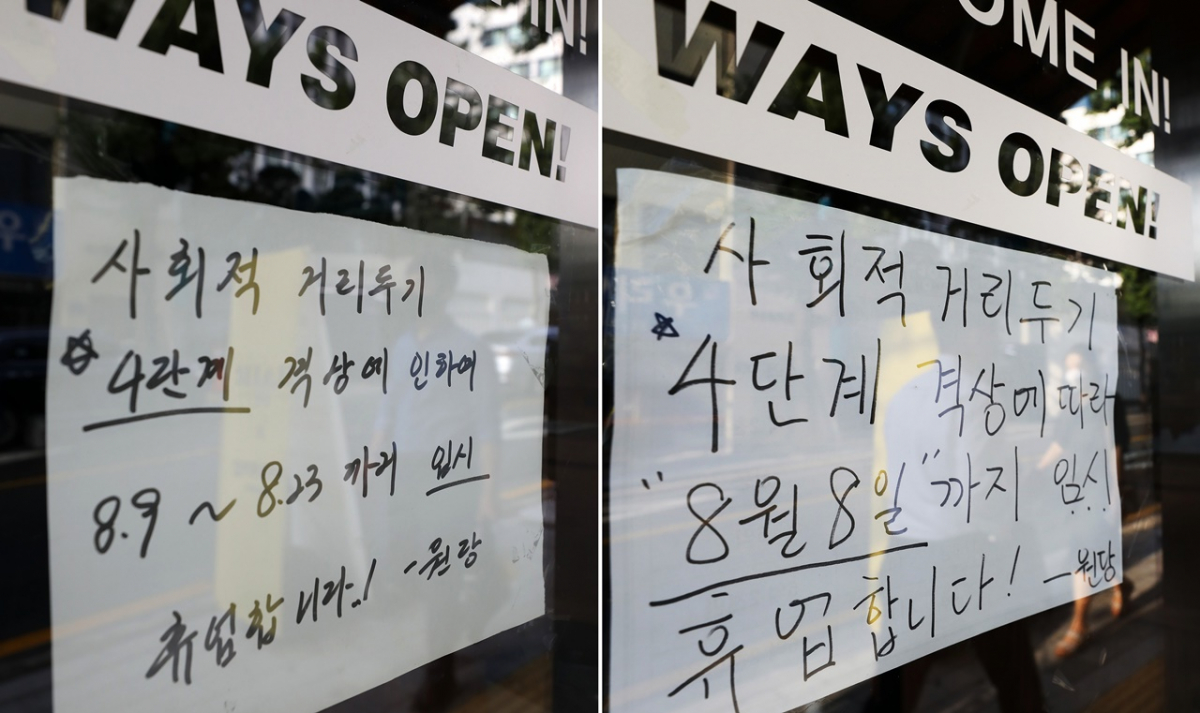 IN!
WAYS OPEN!
사회적 거리두기
☆ 4단계 격상에 인하여
8.9 ~ 8.23 까지 임시
휴업합니다..! -원당
OME IN!
WAYS OPEN!
사회적 거리두기
☆ 4단계 격상에 따라
"8월 8일" 까지 임시
휴업합니다! -원당